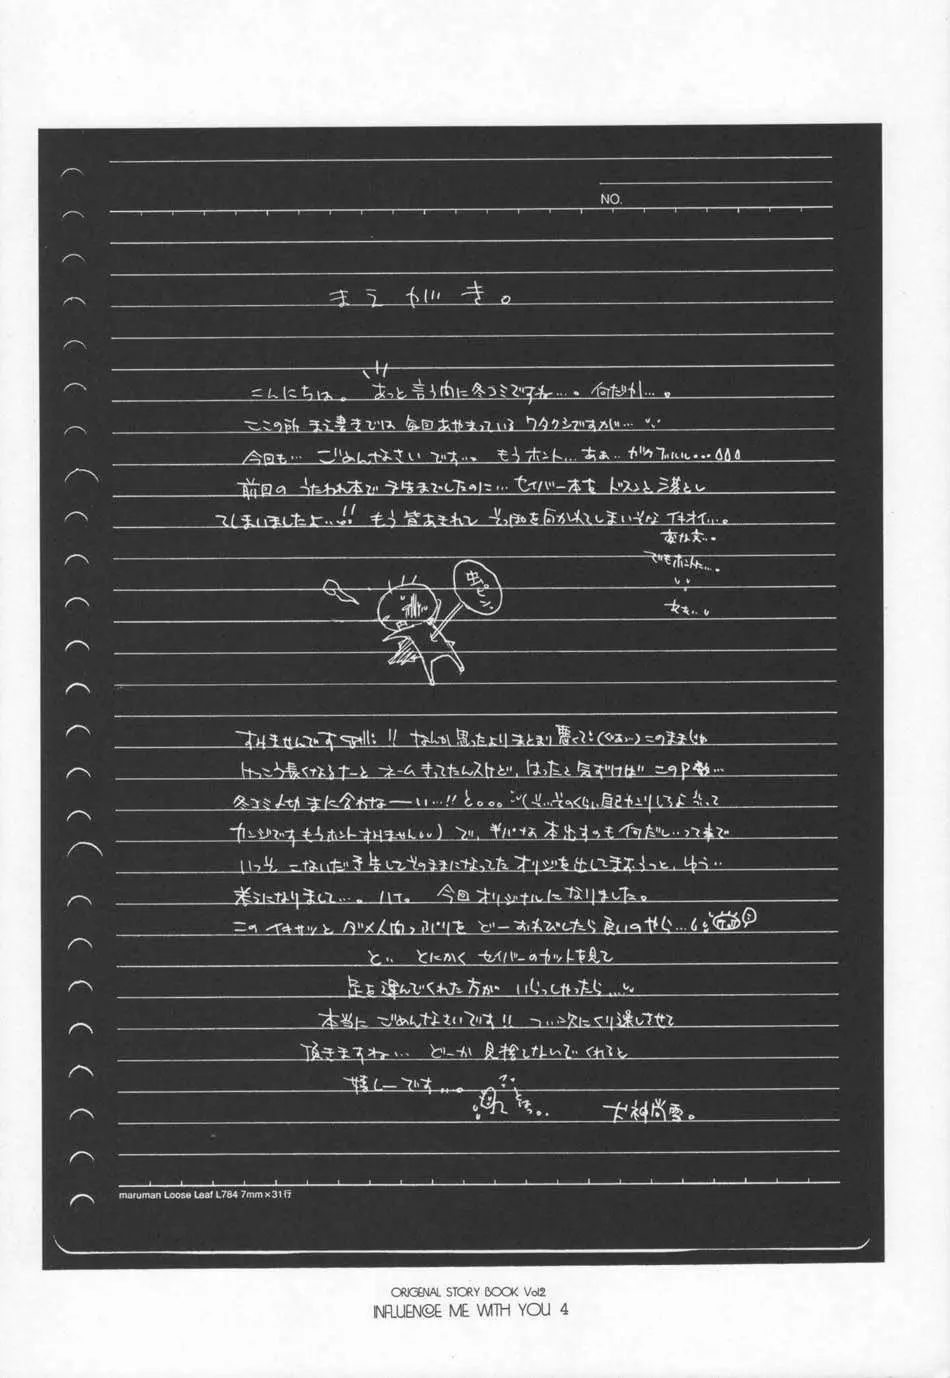 NO.
まえがき。
こんにちは。あっと言う内に冬コミですね…。何だか…。
ここの所 まえ書きでは 毎回あやまっている ワタクシですが…
今日も… ごめんなさい です… もうホント… あぁ… ガクブルルル…
前回の うたわれ本で 予告までしたのに… セイバー本を ドスンと落とし
てしまいましたよ…!! もう皆あきれて そっぽを向かれてしまいそな イキオイ…。
変な文…。
でもホント…
虫ピン
すみませんです !! なんか思ったよりまとまり悪くて (ぐはぁ…) このままじゃ
けっこう長くなるなーと ネームきってたんスけど、はったと気ずけば このP数…
冬コミ〆切 まに合わなーい…!! と。。。(そ…そのくらい自己カンリしろよ って
カンジです もうホント すみません) で、半パな 本出すのも何だし… って事で
いっそ こないだ予告してそのままになってた オリジを出してまおうっと、ゆう
考えになりまして…。ハイ。 今回オリジナルになりました。
この イキサツと ダメ人間っぷりを どーおわびしたら良いのやら…
と、とにかく セイバーのカットを見て
足を運んでくれた方が いらっしゃったら…
本当に ごめんなさいです!! つ、次にくり越しさせて
頂きますね… どーか 見捨てないでくれると
嬉しーです…。
犬神尚雪。
maruman Loose Leaf L784 7mm×31行
ORIGENAL STORY BOOK Vol2
INFLUENCE ME WITH YOU 4